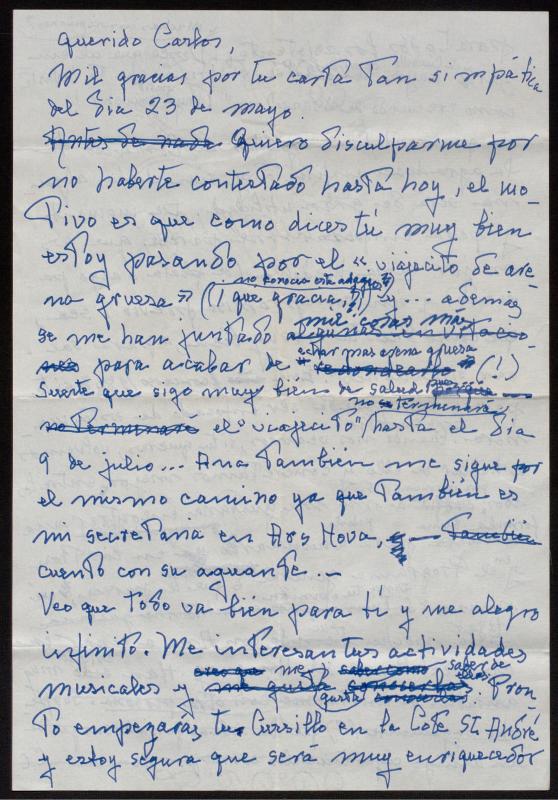 querido Carlos,
Mil gracias por tu carta tan simpática
del día 23 de mayo.
Antes de nada Quiero disculparme por
no haberte contestado hasta hoy, el mo-
tivo es que como dices tú muy bien
estoy pasando por el "viajecito de are-
no conocía este adagio
na gruesa" (¡que gracia,!) y... además
mil cosas más
se me han juntado algunas
para acabar de
echar mas arena gruesa
"redondearlo" (!)
Suerte que sigo muy bien de salud pues
no se terminará
no terminaré el "viajecito" hasta el día
9 de julio... Ana también me sigue por
el mismo camino ya que también es
mi secretaria en Ars Nova, y también
cuento con su aguante...
Veo que todo va bien para tí y me alegro
infinito. Me interesan tus actividades
creo que me saber como saber de ellas
musicales y me gusta conocerlas. Pron-
gusta conocerlas
to empezarás tu Cursillo en la Côte St. André
y estoy segura que será muy enriquecedor